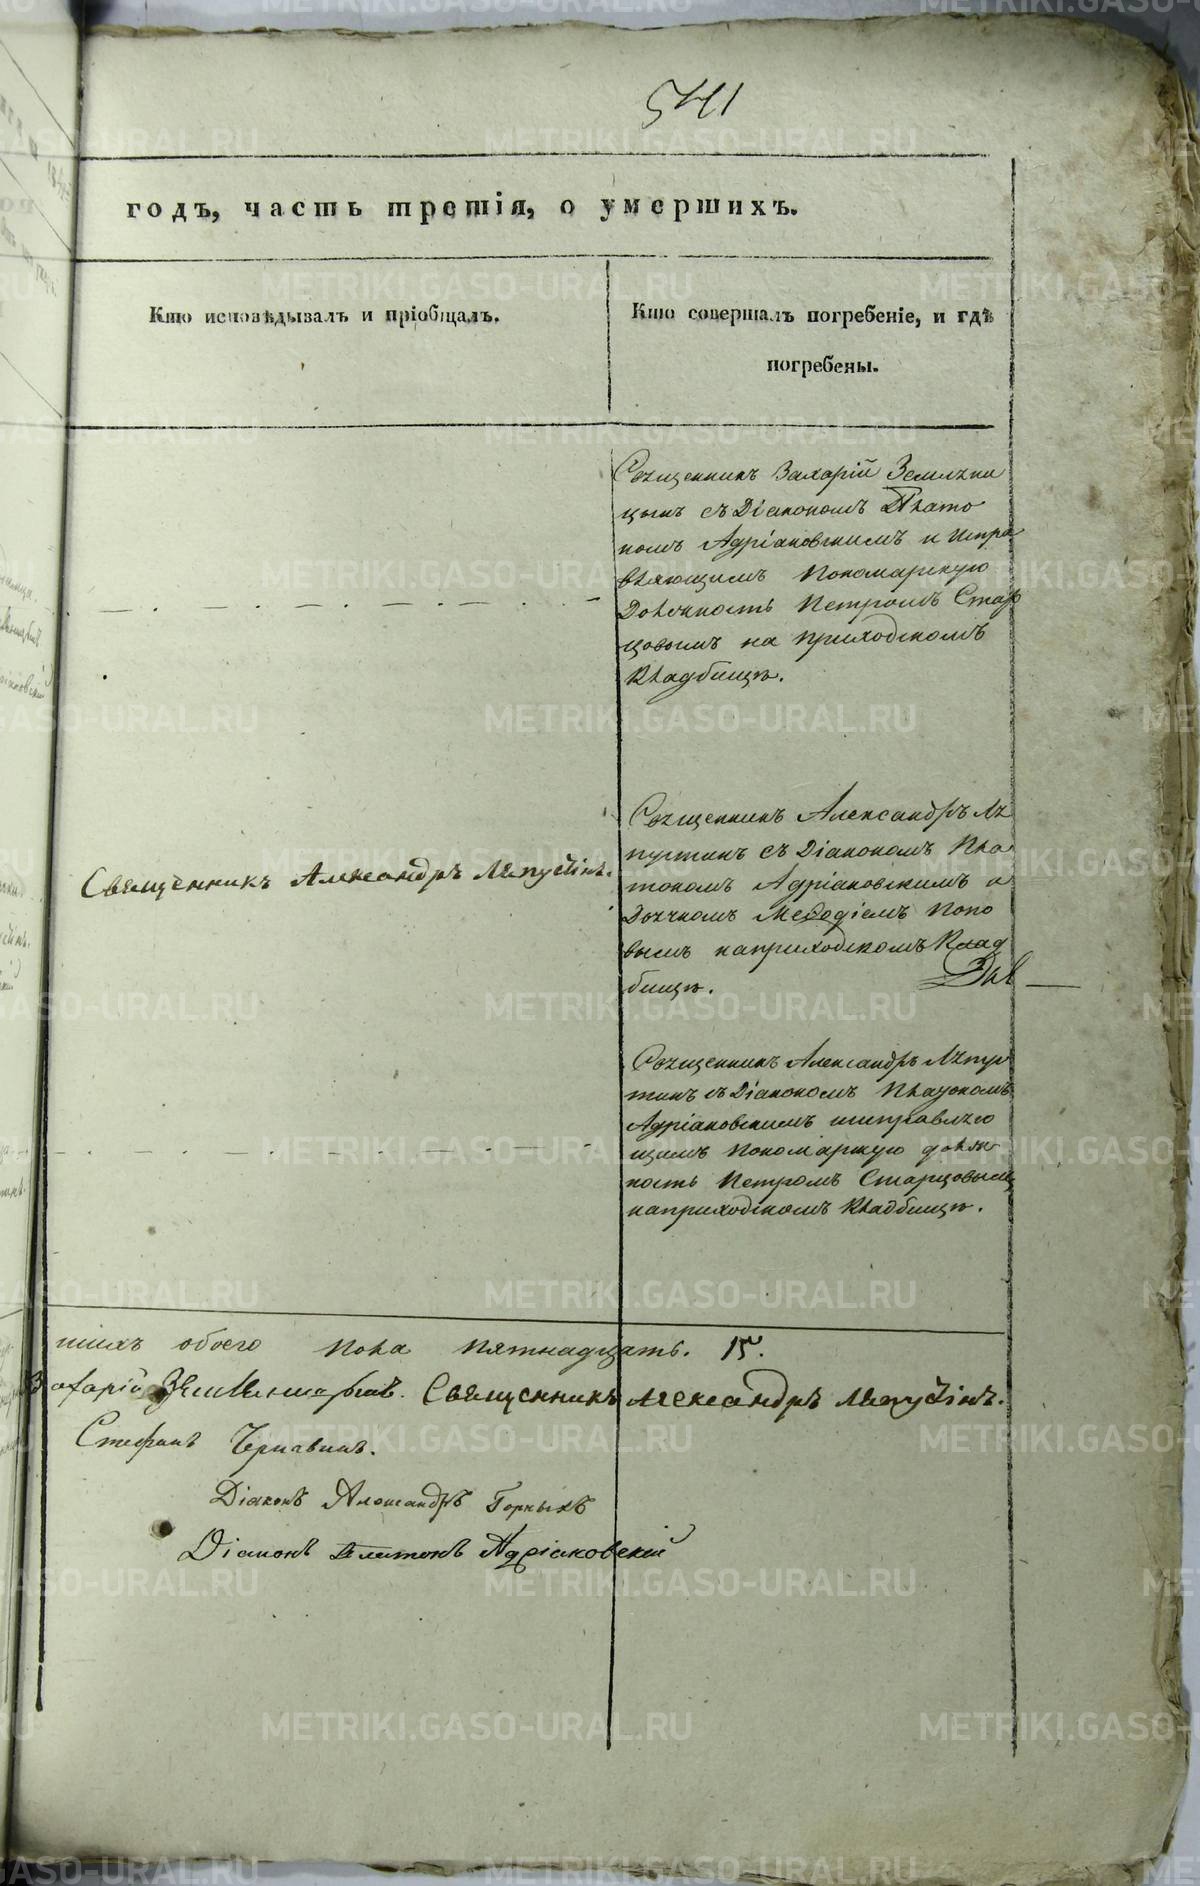 541
годъ, часть третія, о умершихъ.
Кто исповѣдывалъ и пріобщалъ.
Кто совершалъ погребеніе, и гдѣ
погребены.
Священникъ Захарій Земляни
цынъ съ Діакономъ Плато
номъ Адріановскимъ и испра
вляющимъ Пономарскую
Должность Петромъ Стар
цовымъ на приходскомъ
Кладбищѣ.
Священникъ Александръ Ляпустинъ.
Священникъ Александръ Ля
пустинъ съ Діакономъ Пла
тономъ Адріановскимъ и
Дьячкомъ Меѳодіемъ Попо
вымъ наприходскомъ Клад
бищѣ.
Священникъ Александръ Ляпус
тинъ съ Діакономъ Платономъ
Адріановскимъ исправляю
щимъ Пономарскую должн
ность Петромъ Старцовымъ
наприходскомъ Кладбищѣ.
шихъ обоего пола пятнадцать. 15.
Захарій Священникъ Александръ Ляпустинъ.
Стефанъ Чернавинъ.
Діаконъ Александръ Горныхъ
Діаконъ Платонъ Адріановскій
METRIKI.GASO-URAL.RU